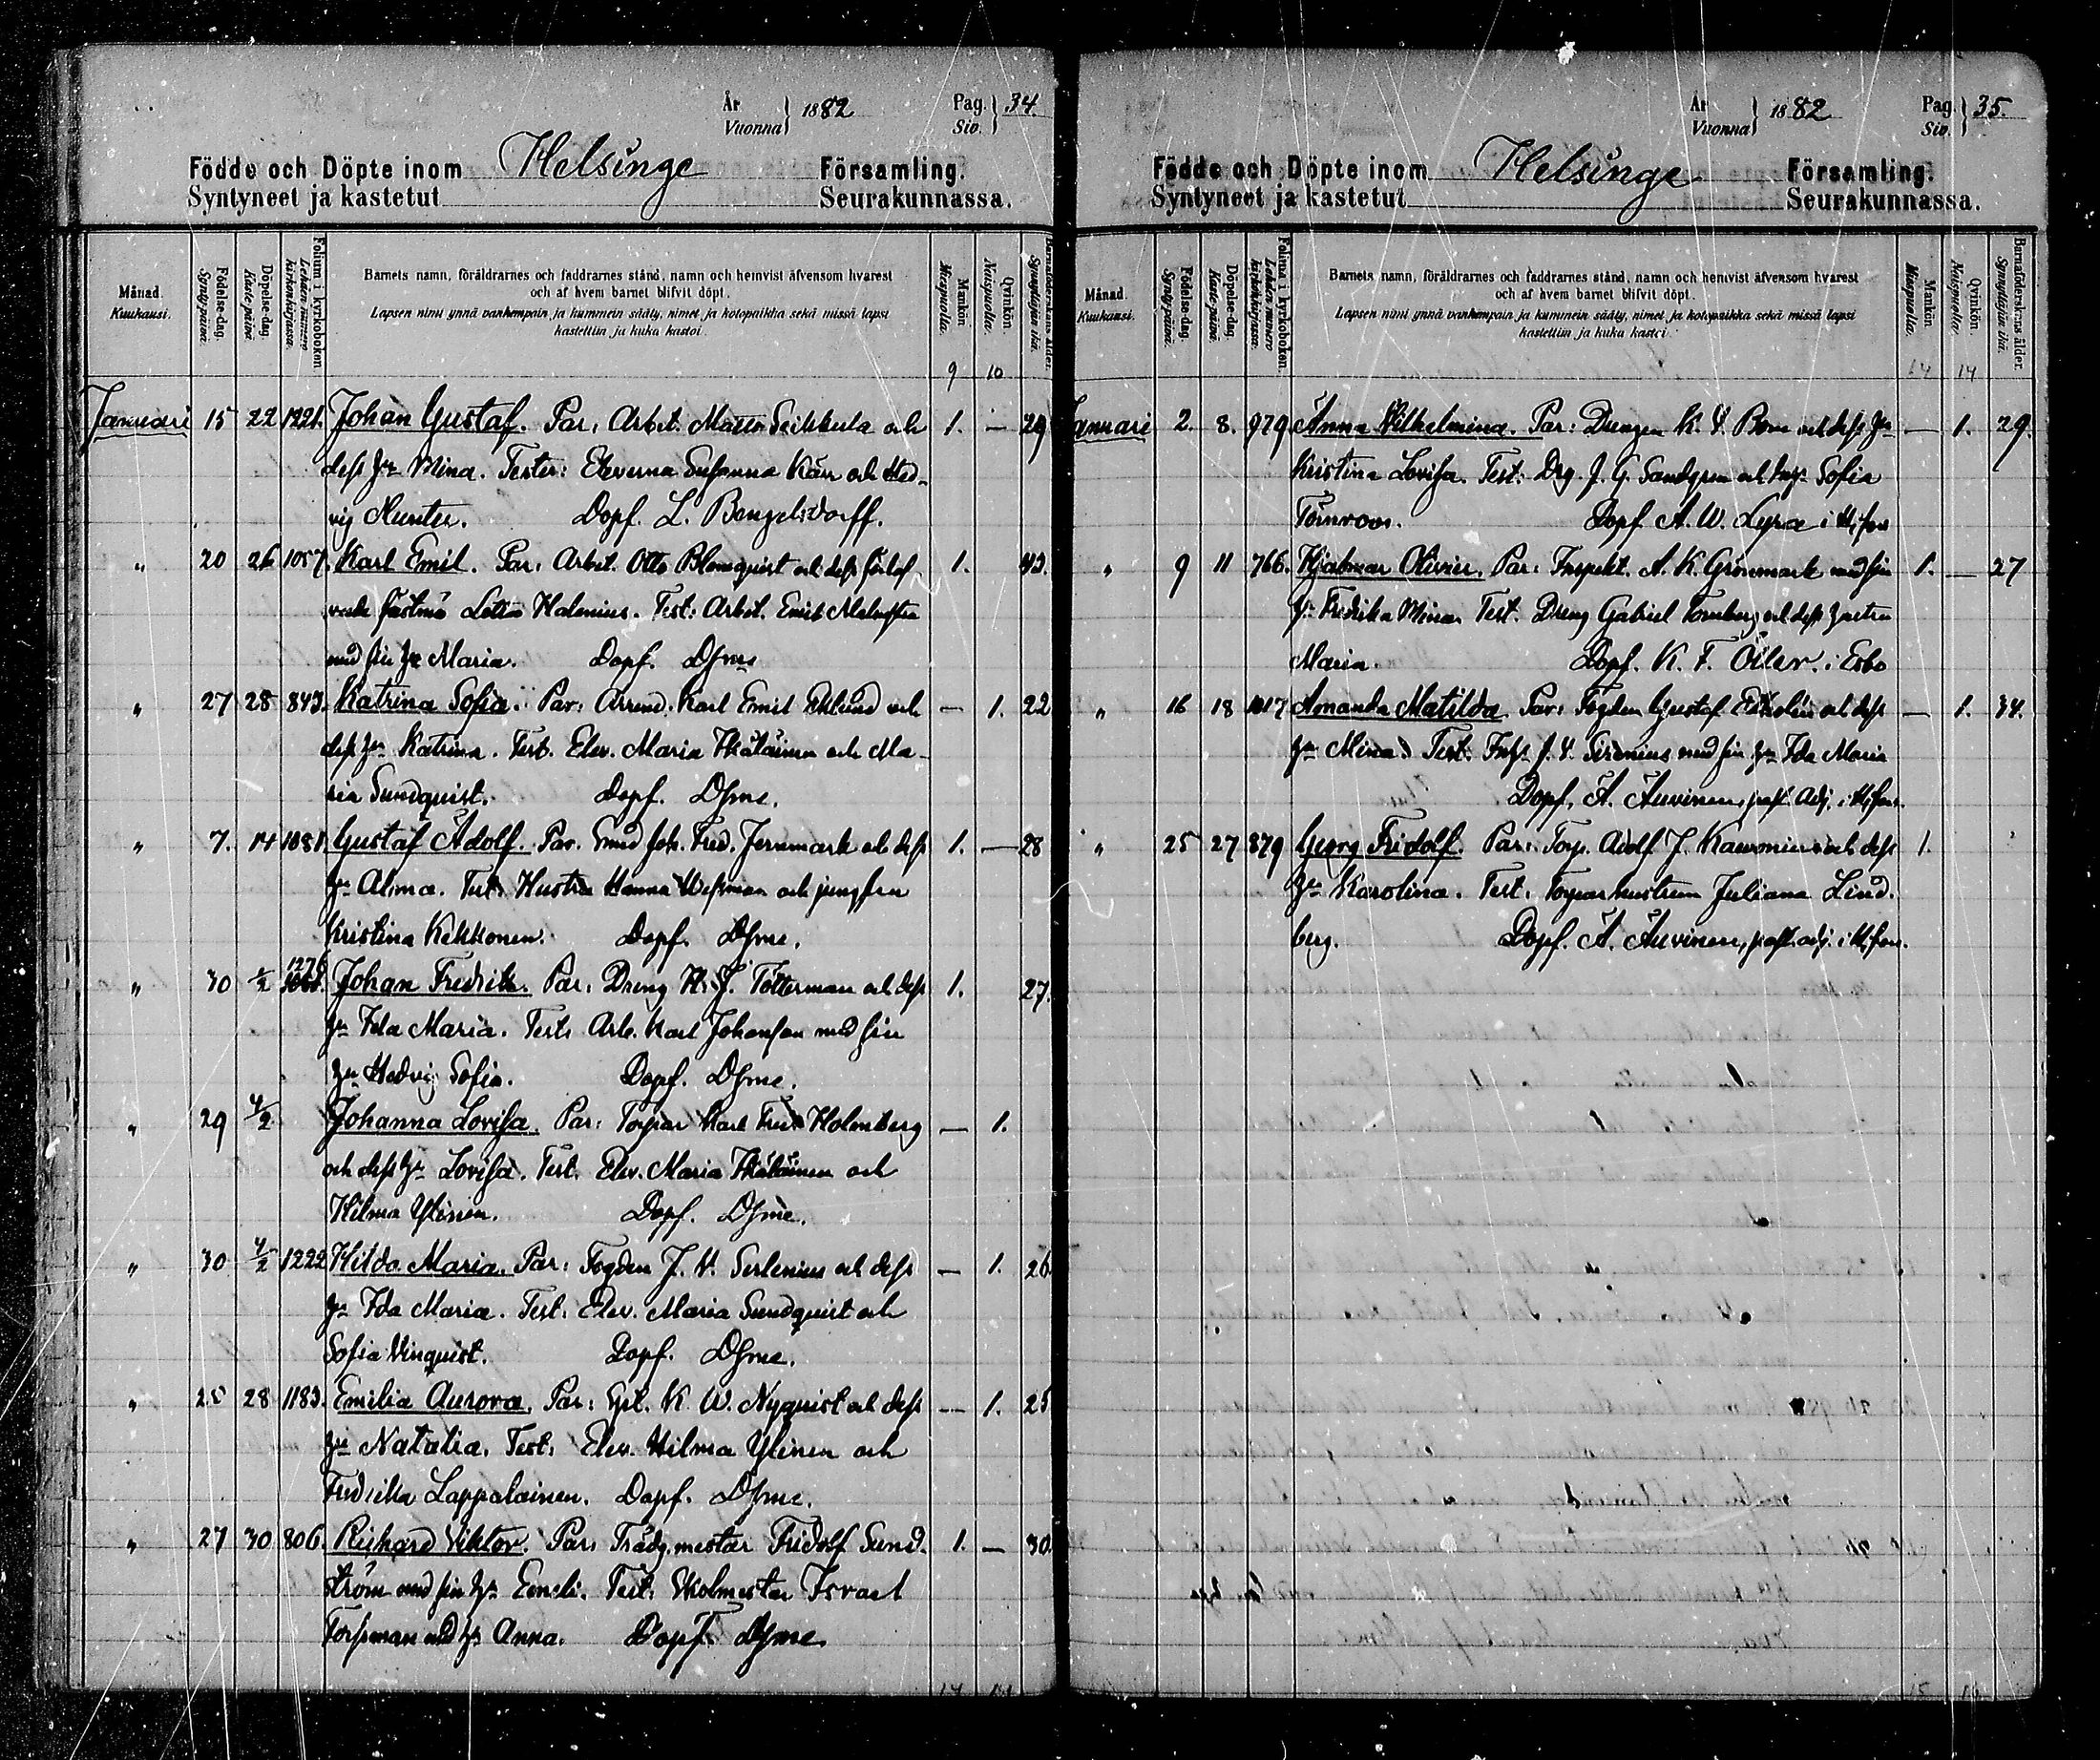 År
Vuonna
1882
Pag.
Siv.
34.
Födde och Döpte inom Helsinge Församling.
Syntyneet ja kastetut Seurakunnassa.
Månad.
Kuukausi.
Födelse-dag.
Syntypäivä.
Döpelse-dag.
Kaste-päivä.
Folium i kyrkoboken.
Lehden numero kirkonkirjassa.
Barnets namn, föräldrarnes och faddrarnes stånd, namn och hemvist äfvensom hvarest
och af hvem barnet blifvit döpt.
Lapsen nimi ynnä vanhempain ja kummein sääty, nimet ja kotopaikka sekä missä lapsi
kastettiin ja kuka kastoi.
Mankön
Miespuolia.
Qvinkön.
Naispuolia.
Barnaföderskans ålder.
Synnyttäjän ikä.
9 10
Januari 15 22 1221. Johan Gustaf. Par: Arbet. Matts Seikkula och 1. — 29
dess hu Mina. Tester: Eleverna Susanna Kärr och Hed-
vig Hunter. Döpf. L. Bengelsdorff.
" 20 26 1057. Karl Emil. Par: Arbet. Otto Blomquist och dess förlof 1. 43.
vade fästmö Lotta Halenius. Test: Arbet. Emil
med sin hu Maria. Döpf. Dsme
" 27 28 843. Katrina Sofia. Par: Arrend. Karl Emil Eklund och — 1. 22
dess hu Katrina. Test. Elev. Maria Ikäläinen och Ma-
ria Sundquist. Döpf. Dsme.
" 7. 14 1081 Gustaf Adolf. Par. Smed Joh. Fred. Jernmark och dess 1. — 28
hu Alma. Test. Hustru Hanna Wessman och jungfru
Kristina Kekkonen. Döpf. Dsme.
" 30 1/2 1276 Johan Fredrik. Par: Dreng H. J. Totterman och dess 1. 27.
hu Ida Maria. Test. Arb. Karl Johansson med sin
hu Hedvig Sofia. Döpf. Dsme.
" 29 4/2 Johanna Lovisa. Par: Torpar Karl Fred. Holmberg — 1.
och dess hu Lovisa. Test. Elev. Maria Ikäläinen och
Hilma Ylinen. Döpf. Dsme.
" 30 4/2 1222 Hilda Maria. Par: Fogden J. V. Serlenius och dess — 1. 26.
hu Ida Maria. Test. Elev. Maria Sundquist och
Sofia Vinquist. Döpf. Dsme.
" 25 28 1183. Emilia Aurora. Par: K. W. Nyquist och dess — 1. 25
hu Natalia. Test. Elev. Hilma Ylinen och
Fredrika Lappalainen. Döpf. Dsme.
" 27 30 806. Richard Viktor. Par: Trädg.mestar Fridolf Sund- 1. — 30.
ström med sin hu Emeli. Test: Skolmestar Israel
Forssman och hu Anna. Döpf. Dsme
År
Vuonna
1882
Pag.
Siv.
35.
Födde och Döpte inom Helsinge Församling.
Syntyneet ja kastetut Seurakunnassa.
Månad.
Kuukausi.
Födelse-dag.
Syntypäivä.
Döpelse-dag.
Kaste-päivä.
Folium i kyrkoboken.
Lehden numero kirkonkirjassa.
Barnets namn, föräldrarnes och faddrarnes stånd, namn och hemvist äfvensom hvarest
och af hvem barnet blifvit döpt.
Lapsen nimi ynnä vanhempain ja kummein sääty, nimet ja kotopaikka sekä missä lapsi
kastettiin ja kuka kastoi.
Mankön
Miespuolia.
Qvinkön.
Naispuolia.
Barnaföderskans ålder.
Synnyttäjän ikä.
14 14
Januari 2. 8. 979. Anna Vilhelmina. Par: Drengen K. V. Bom och dess hu — 1. 29.
Kristina Lovisa. Test: Drg. J. G. Sandgren och Sofia
Törnroos. Döpf. A. W. Lyra i H:fors
" 9 11 766. Hjalmar Olivier. Par: Inspekt. A. K. Grönmark med sin 1. — 27
hu Fredrika Mina. Test. Dreng Gabriel Tornberg och dess hustru
Maria. Döpf. K. F. Öller. i Esbo
" 16 18 1017 Amanda Matilda. Par: Fogden Gustaf Ekholm och dess — 1. 34.
hu Mina. Test: J. V. Serenius med sin hu Ida Maria
Döpf. A. Auvinen, past. adj. i H:fors.
" 25 27 879 Georg Fridolf. Par: Torp. Adolf J. Kawonius och dess 1.
hu Karolina. Test. Torparhustrun Juliana Lind-
berg. Döpf. A. Auvinen, past. adj. i H:fors.